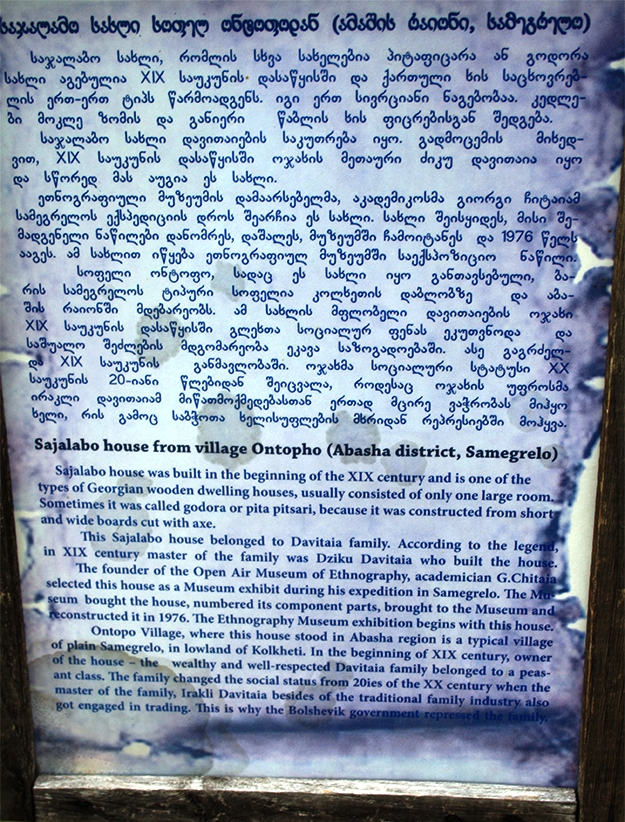 საჯალაბო სახლი სოფელ ონტოფოდან (აბაშის რაიონი, სამეგრელო)
საჯალაბო სახლი, რომლის სხვა სახელებია პიტაფიცარა ან გოდორა
სახლი აგებულია XIX საუკუნის დასაწყისში და ქართული ხის საცხოვრებ-
ლის ერთ-ერთ ტიპს წარმოადგენს. იგი ერთ სივრციანი ნაგებობაა. კედლე-
ბი მოკლე ზომის და განიერი წაბლის ხის ფიცრებისგან შედგება.
საჯალაბო სახლი დავითაიების საკუთრება იყო. გადმოცემის მიხედ-
ვით, XIX საუკუნის დასაწყისში ოჯახის მეთაური ძიკუ დავითაია იყო
და სწორედ მას აუგია ეს სახლი.
ეთნოგრაფიული მუზეუმის დამაარსებელმა, აკადემიკოსმა გიორგი ჩიტაიამ
სამეგრელოს ექსპედიციის დროს შეარჩია ეს სახლი. სახლი შეისყიდეს, მისი შე-
მადგენელი ნაწილები დანომრეს, დაშალეს, მუზეუმში ჩამოიტანეს და 1976 წელს
ააგეს. ამ სახლით იწყება ეთნოგრაფიულ მუზეუმში საექსპოზიციო ნაწილი.
სოფელი ონტოფო, სადაც ეს სახლი იყო განთავსებული, ბა-
რის სამეგრელოს ტიპური სოფელია კოლხეთის დაბლობზე და აბა-
შის რაიონში მდებარეობს. ამ სახლის მფლობელი დავითაიების ოჯახი
XIX საუკუნის დასაწყისში გლეხთა სოციალურ ფენას ეკუთვნოდა და
საშუალო შეძლების მდგომარეობა ეკავა საზოგადოებაში. ასე გაგრძელ-
და XIX საუკუნის განმავლობაში. ოჯახმა სოციალური სტატუსი XX
საუკუნის 20-იანი წლებიდან შეიცვალა, როდესაც ოჯახის უფროსმა
ირაკლი დავითაიამ მიწათმოქმედებასთან ერთად მცირე ვაჭრობას მიჰყო
ხელი, რის გამოც საბჭოთა ხელისუფლების მხრიდან რეპრესიებში მოჰყვა.
Sajalabo house from village Ontopho (Abasha district, Samegrelo)
Sajalabo house was built in the beginning of the XIX century and is one of the
types of Georgian wooden dwelling houses, usually consisted of only one large room.
Sometimes it was called godora or pita pitsari, because it was constructed from short
and wide boards cut with axe.
This Sajalabo house belonged to Davitaia family. According to the legend,
in XIX century master of the family was Dziku Davitaia who built the house.
The founder of the Open Air Museum of Ethnography, academician G.Chitaia
selected this house as a Museum exhibit during his expedition in Samegrelo. The Mu-
seum bought the house, numbered its component parts, brought to the Museum and
reconstructed it in 1976. The Ethnography Museum exhibition begins with this house.
Ontopo Village, where this house stood in Abasha region is a typical village
of plain Samegrelo, in lowland of Kolkheti. In the beginning of XIX century, owner
of the house – the wealthy and well-respected Davitaia family belonged to a peas-
ant class. The family changed the social status from 20ies of the XX century when the
master of the family, Irakli Davitaia besides of the traditional family industry also
got engaged in trading. This is why the Bolshevik government repressed the family.